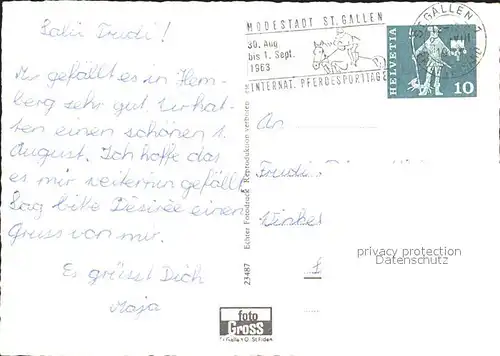 Salü Trudi!
Mir gefällt es in Hem-
berg sehr gut. Wir hat-
ten einen schönen 1.
August. Ich hoffe das
es mir weiterhin gefällt
Sag bitte Désirée einen
Gruss von mir.
Es grüsst Dich
Maja
MODESTADT ST. GALLEN
30. Aug.
bis 1. Sept.
1963
INTERNAT. PFERDESPORTTAGE
ST. GALLEN 1
HELVETIA
10
An
Trudi
Winkel
privacy protection
Datenschutz
23487 Echter Fotodruck Reproduktion verboten
foto
GROSS
St. Gallen O. St. Fiden